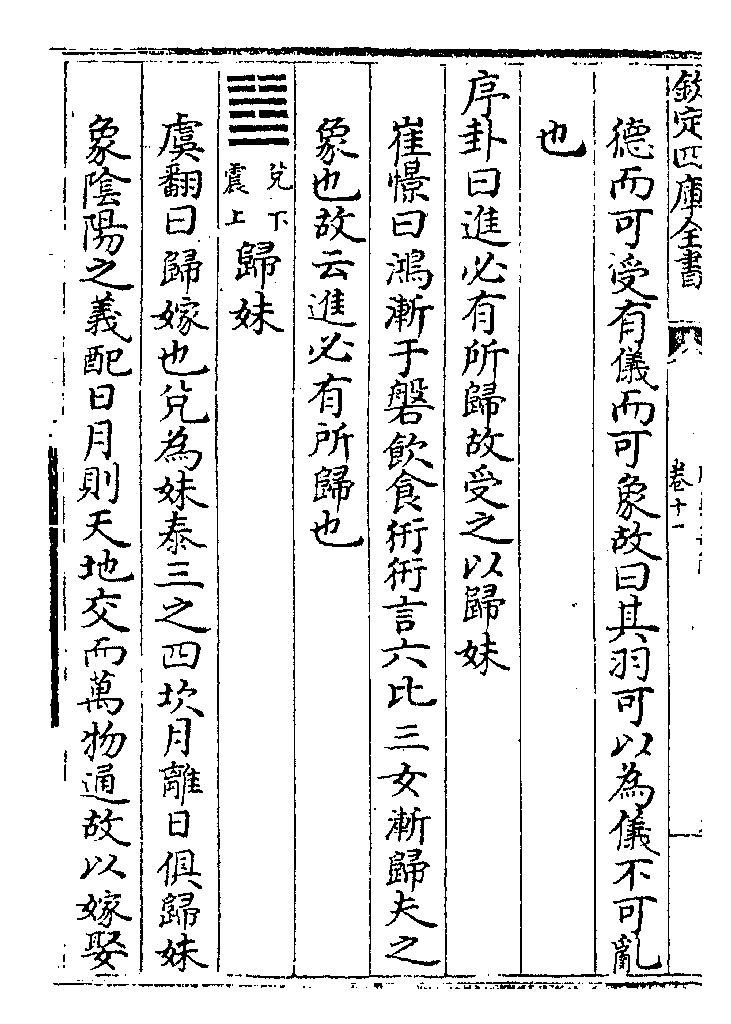 欽定四庫全書
卷十一
德而可受有儀而可象故曰其羽可以為儀不可亂
也
序卦曰進必有所歸故受之以歸妹
崔憬曰鴻漸于磐飲食衎衎言六比三女漸歸夫之
象也故云進必有所歸也
䷵兌下震上歸妹
虞翻曰歸嫁也兌為妹泰三之四坎月離日俱歸妹
象陰陽之義配日月則天地交而萬物通故以嫁娶